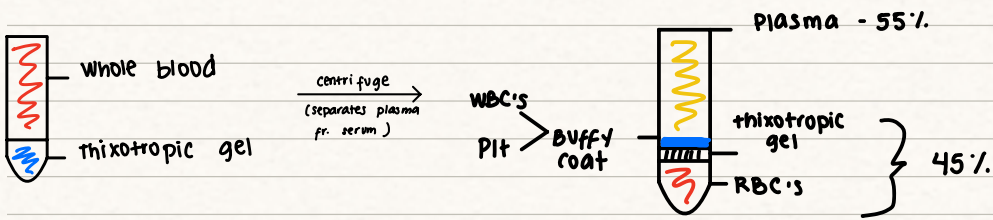 Whole blood
Thixotropic gel
centrifuge
(separates plasma
fr. serum)
WBC's
Plt
Buffy
coat
Plasma - 55%
thixotropic
gel
RBC's
45%